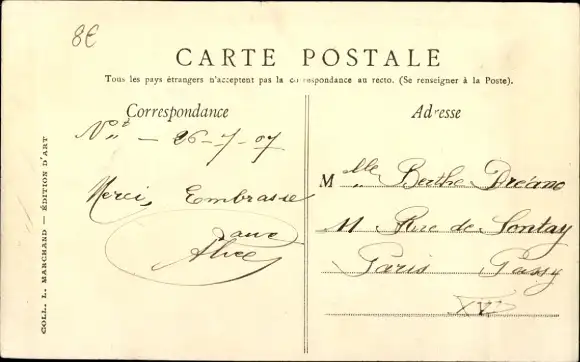 8€
CARTE POSTALE
Tous les pays étrangers n'acceptent pas la correspondance au recto. (Se renseigner à la Poste).
Correspondance
26-7-07
Merci, Embrasse
Alice
Adresse
Melle Berthe Dréano
11 Rue de Pontay
Paris Passy
XVI
COLL. L. MARCHAND — ÉDITION D'ART